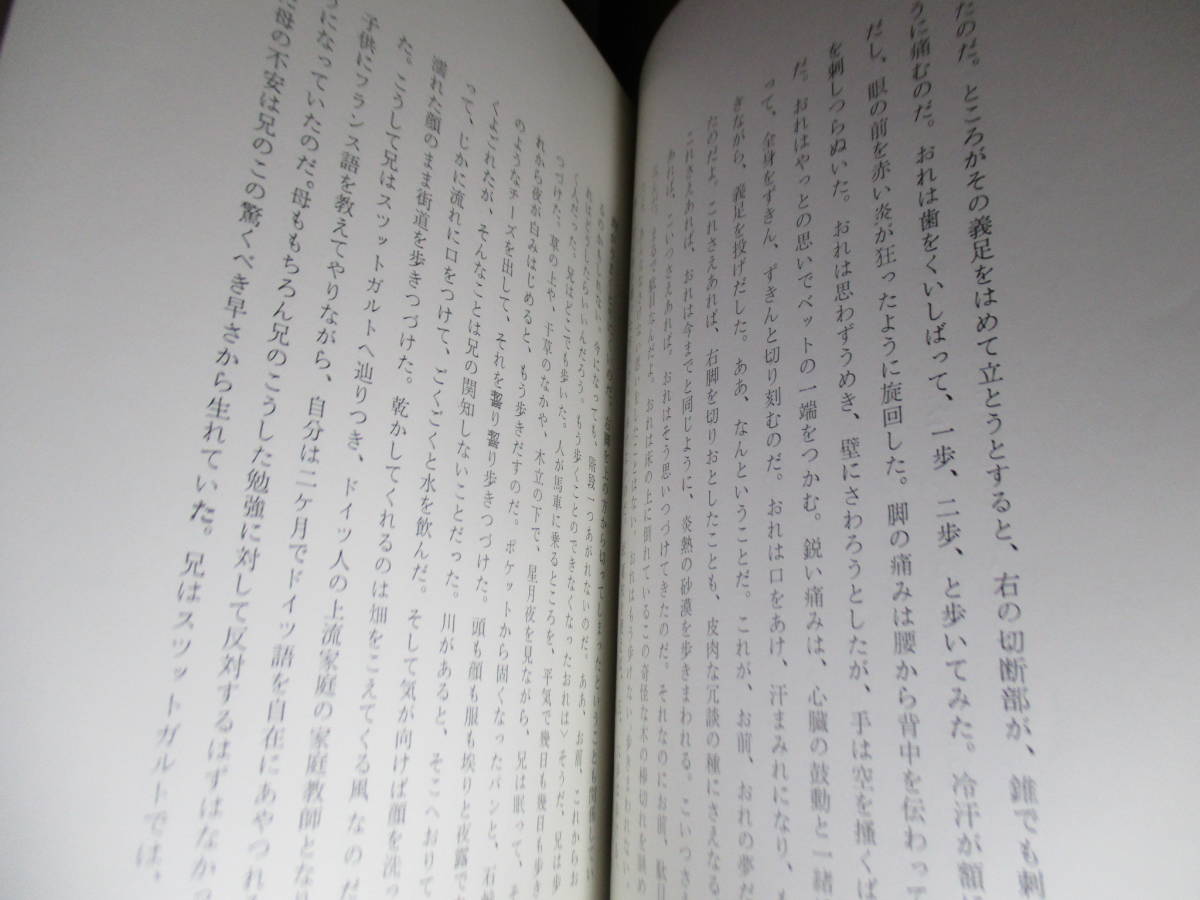 たのだ。ところがその義足をはめて立とうとすると、右の切断部が、錐でも刺
うに痛むのだ。おれは歯をくいしばって、一歩、二歩、と歩いてみた。冷汗が額
だし、眼の前を赤い炎が狂ったように旋回した。脚の痛みは腰から背中を伝わって
を刺しつらぬいた。おれは思わずうめき、壁にさわろうとしたが、手は空を掻くば
だ。おれはやっとの思いでベットの一端をつかむ。鋭い痛みは、心臓の鼓動と一緒
って、全身をずきん、ずきんと切り刻むのだ。おれは口をあけ、汗まみれになり、も
ぎながら、義足を投げだした。ああ、なんということだ。これが、お前、おれの夢だ
たのだよ。これさえあれば、右脚を切りおとしたことも、皮肉な冗談の種にさえなる。
これさえあれば、おれは今までと同じように、炎熱の砂漠を歩きまわれる。こいつさ
あれば、こいつさえあれば。おれはそう思いつづけてきたのだ。それなのにお前、駄目
まるで駄目なんだよ。おれは床の上に倒れているこの奇怪な木の棒切れを眺め
おれはもう歩けない。歩きまわれない。
右脚を上の方から切ってしまったということも関係
ものかもしれない。今になっても、階段一つあがれないのだ。ああ、お前、これからお
れはどうしたらいいんだろう。もう歩くことのできなくなったおれは〉そうだ、兄は歩
く人だった。兄はどこでも歩いた。人が馬車に乗るところを、平気で幾日も幾日も歩き
つづけた。草の上や、干草のなかや、木立の下で、星月夜を見ながら、兄は眠って、そ
れから夜が白みはじめると、もう歩きだすのだ。ポケットから固くなったパンと、石
のようなチーズを出して、それを齧り齧り歩きつづけた。頭も顔も服も埃りと夜露で
くよごれたが、そんなことは兄の関知しないことだった。川があると、そこへおりて
って、じかに流れに口をつけて、ごくごくと水を飲んだ。そして気が向けば顔を洗っ
濡れた顔のまま街道を歩きつづけた。乾かしてくれるのは畑をこえてくる風なのだ
た。こうして兄はスツットガルトへ辿りつき、ドイツ人の上流家庭の家庭教師となり
子供にフランス語を教えてやりながら、自分は二ケ月でドイツ語を自在にあやつれる
うになっていたのだ。母ももちろん兄のこうした勉強に対して反対するはずはなかっ
に母の不安は兄のこの驚くべき早さから生れていた。兄はスツットガルトでは、